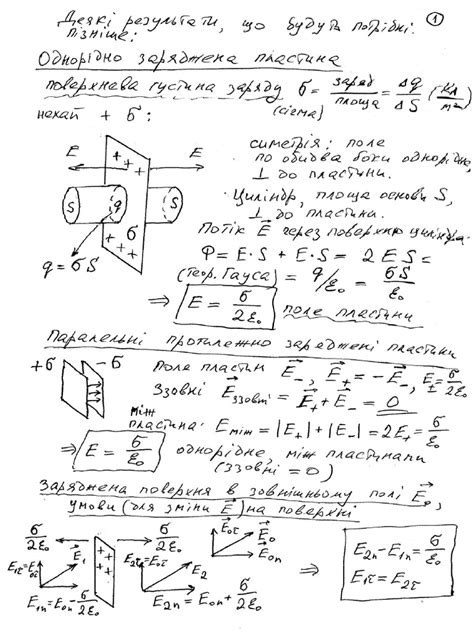 ①
Деякі результати, що будуть потрібні
пізніше:
Однорідно заряджена пластина
поверхнева густина заряду σ = заряд/площа = Δq/ΔS (Кл/м²)
(сігма)
нехай + σ :
симетрія: поле
по обидва боки однорідно,
⊥ до пластини.
E E
S q S
σ
q = σS
Циліндр, площа основи S,
⊥ до пластини.
Потік E⃗ через поверхню циліндра
Φ = E·S + E·S = 2ES =
(Теор. Гауса) = q/ε₀ = σS/ε₀
⇒ E = σ/2ε₀ поле пластини
Паралельні протилежно заряджені пластини
+σ -σ
Поле пластин E⃗₋, E⃗₊ = -E⃗₋, E± = σ/2ε₀
Ззовні E⃗ззовні = E⃗₊ + E⃗₋ = 0
між
пластина. Eміж = |E₊| + |E₋| = 2E₊ = σ/ε₀
⇒ E = σ/ε₀ однорідне, між пластинами
(ззовні = 0)
Заряджена поверхня в зовнішньому полі E⃗₀,
умови (для зміни E⃗) на поверхні
σ/2ε₀ σ/2ε₀
E⃗₁ E₂ E₀τ E⃗₀ E₀n
E₁τ = E₀τ E₂τ = E₀τ
E₁n = E₀n - σ/2ε₀ E₂n = E₀n + σ/2ε₀
⇒ E₂n - E₁n = σ/ε₀
E₁τ = E₂τ